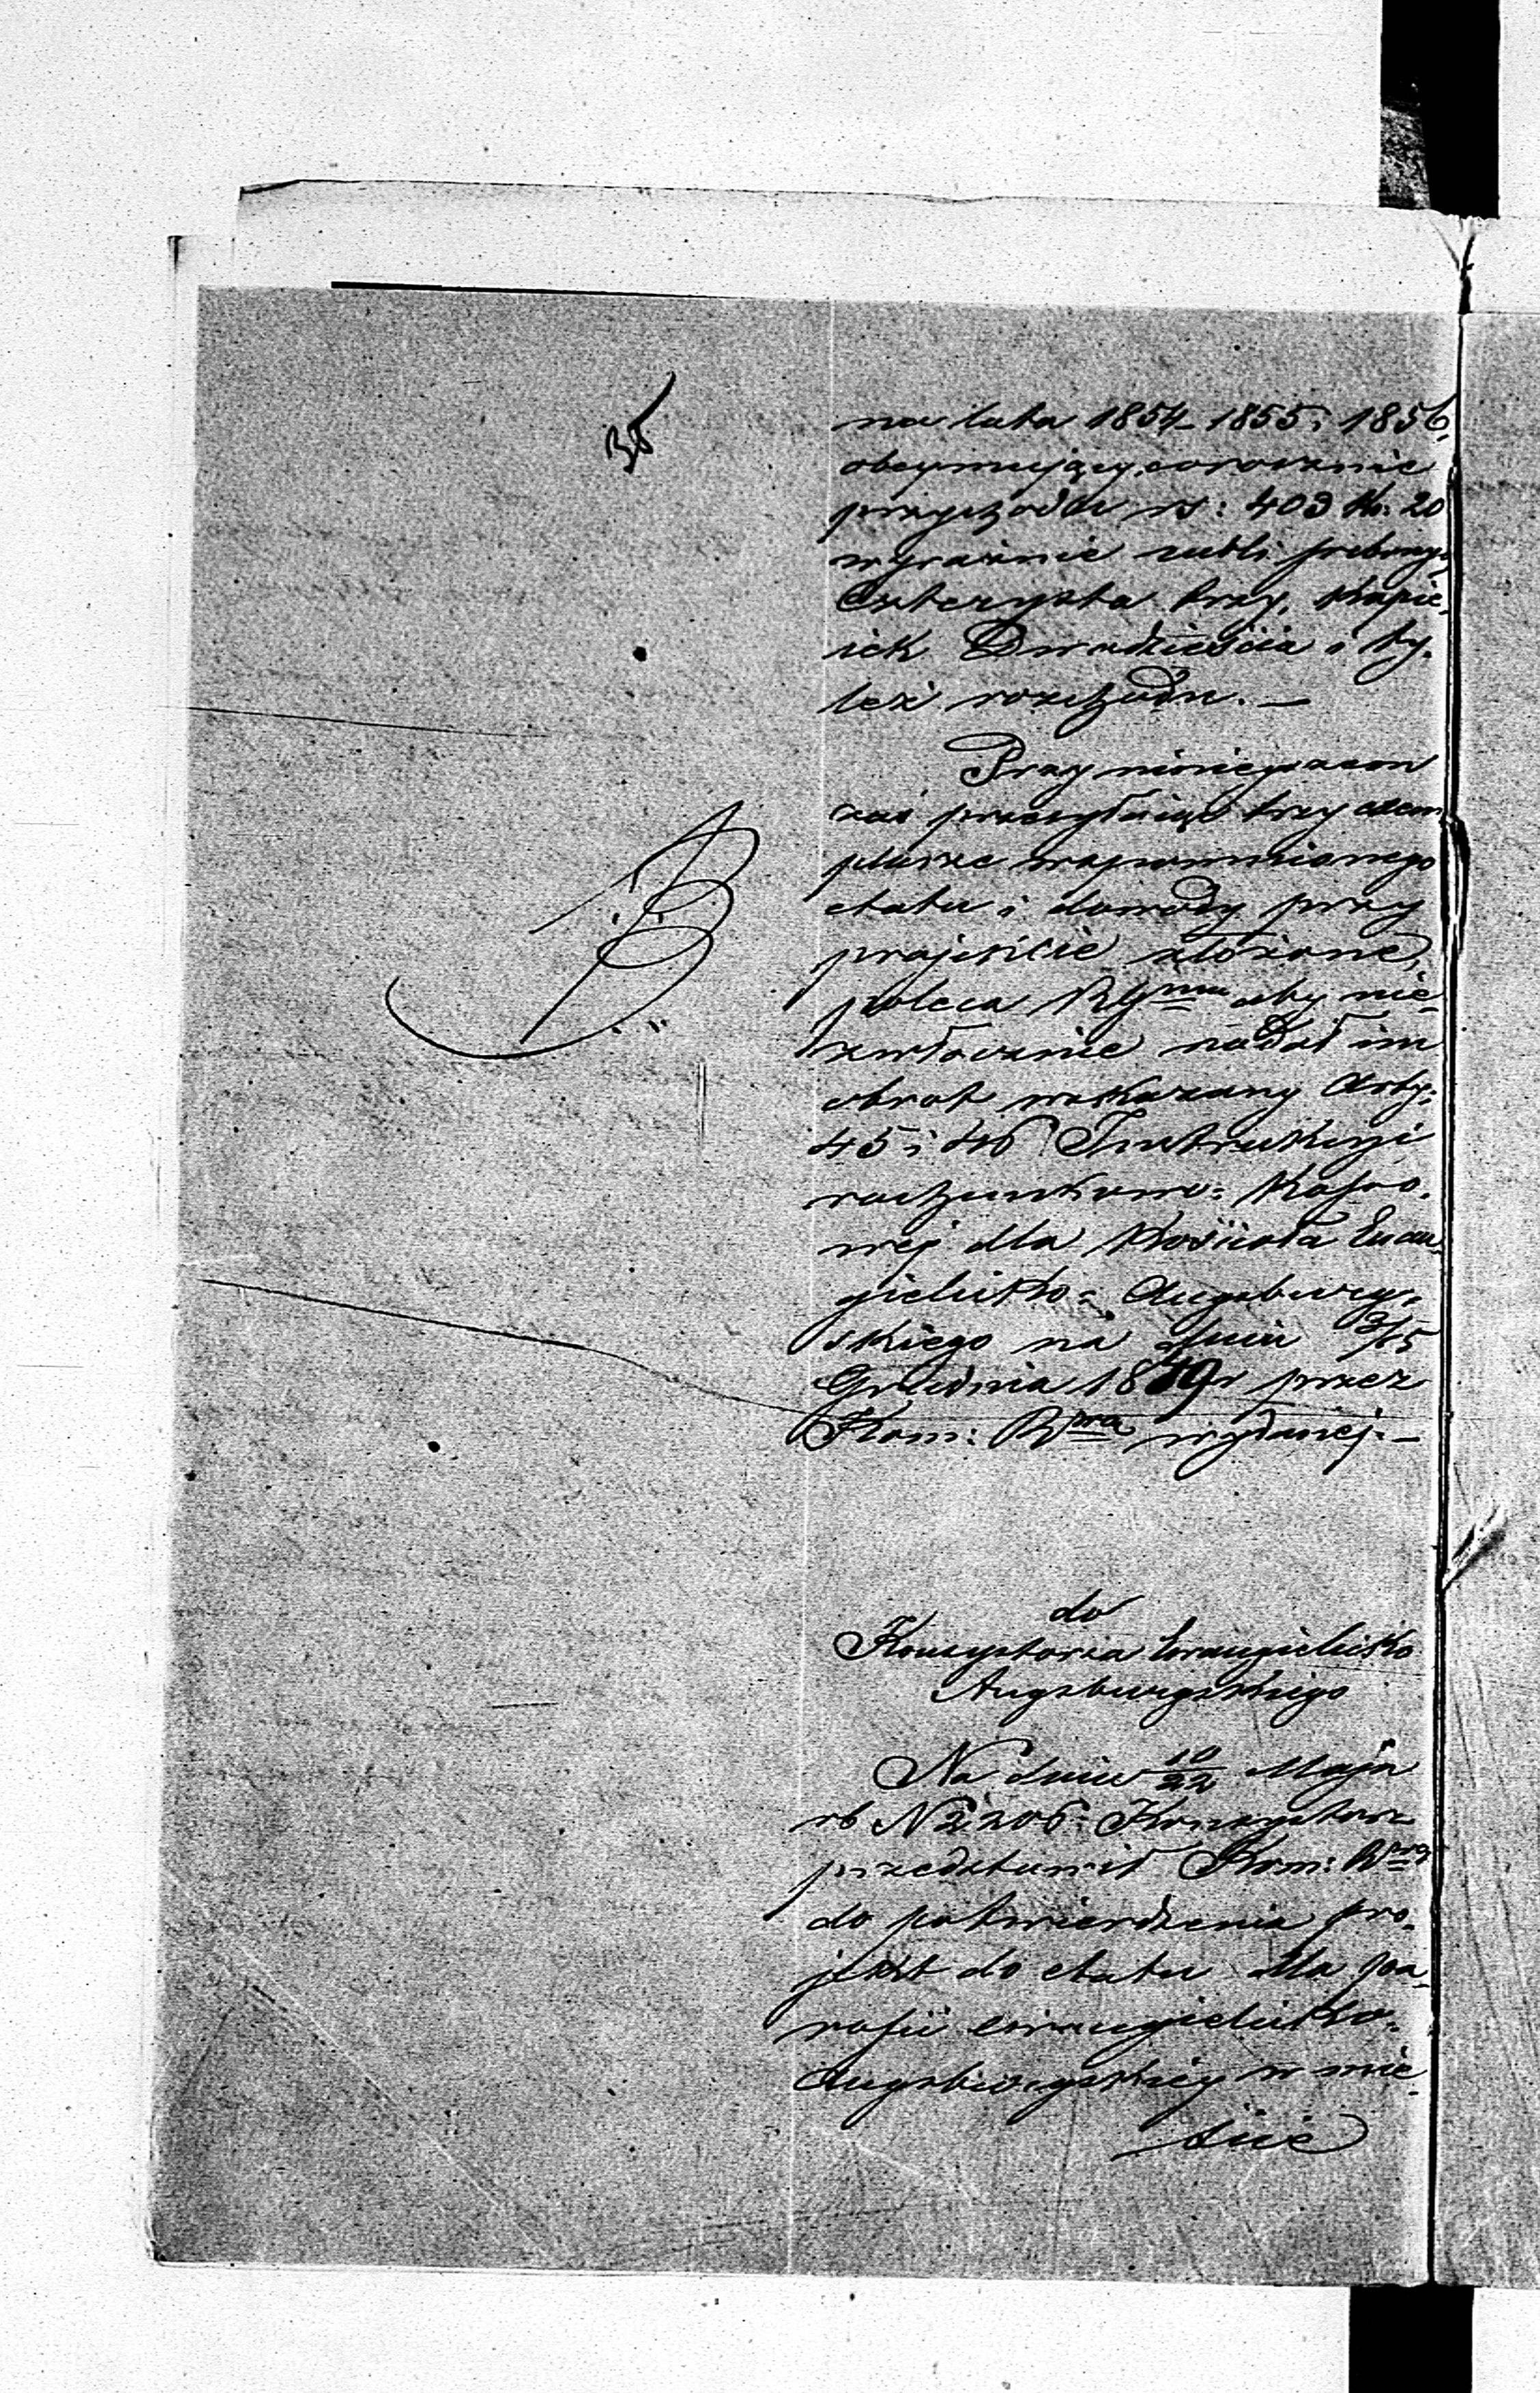 na lata 1854 1855 i 1856,
obeymujący, corocznie
przychodu rs: 403 ko: 20
wyraźnie rubli srebrny:
Czterysta trzy, Kopie,
iek Dwadzieścia i ty,
leż rozchodu. —
Przy niniejszem
zaś przesyłając trzy exem
plarze wspomnionego
etatu i dowody przy
projekcie złożone,
poleca RGmu aby nie
zwłocznie nadał im
obrot wskazany Arty:
45 i 46 Instrukcyi
rachunkowo: Kasso,
wej dla Kościoła Ewan
gielicko: Augsburg,
skiego na dniu 3/15
Grudnia 1849 r przez
Kom: Rprą wydanej. —
do
Konsystorza Ewangielicko
Augsburgskiego
Na dniu 10/22 Maja
rb N 2206: Konsystorz
przedstawił Kom: Rprą
do potwierdzenia pro,
jekt do etatu dla pa,
rafii ewangielicko,
Augsburgskiey w mie,
ście